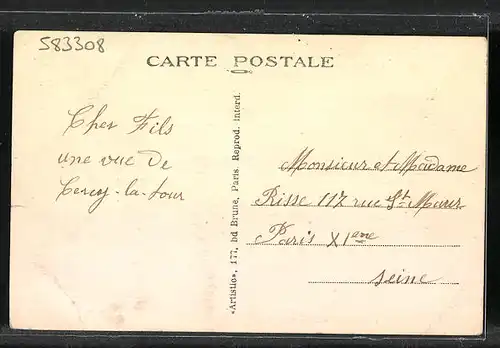 583308
CARTE POSTALE
Cher Fils
une vue de
Cercy-la-tour
«Artistic», 177, bd Brune, Paris. Reprod. interd.
Monsieur et Madame
Risse 117 rue St-Maur
Paris XIeme
seine